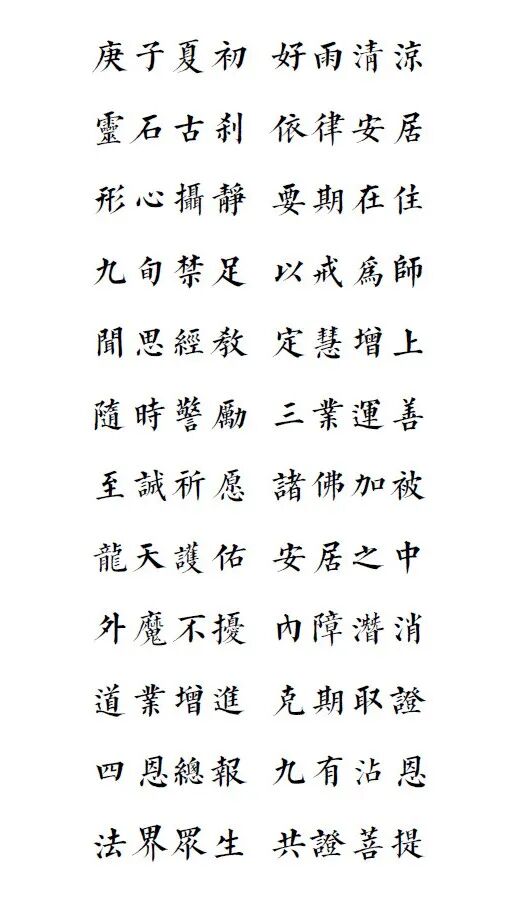 庚子夏初 好雨清涼
靈石古刹 依律安居
形心攝靜 要期在住
九旬禁足 以戒為師
聞思經教 定慧增上
隨時警勵 三業運善
至誠祈愿 諸佛加被
龍天護佑 安居之中
外魔不擾 內障潛消
道業增進 克期取證
四恩總報 九有沾恩
法界眾生 共證菩提